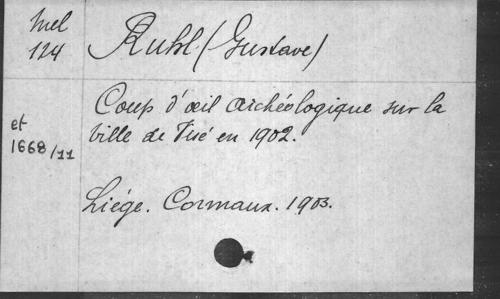 Mel
124
Ruhl (Gustave)
Coup d'œil archéologique sur la
ville de Visé en 1902.
et
1668/11
Liége. Cormaux. 1903.